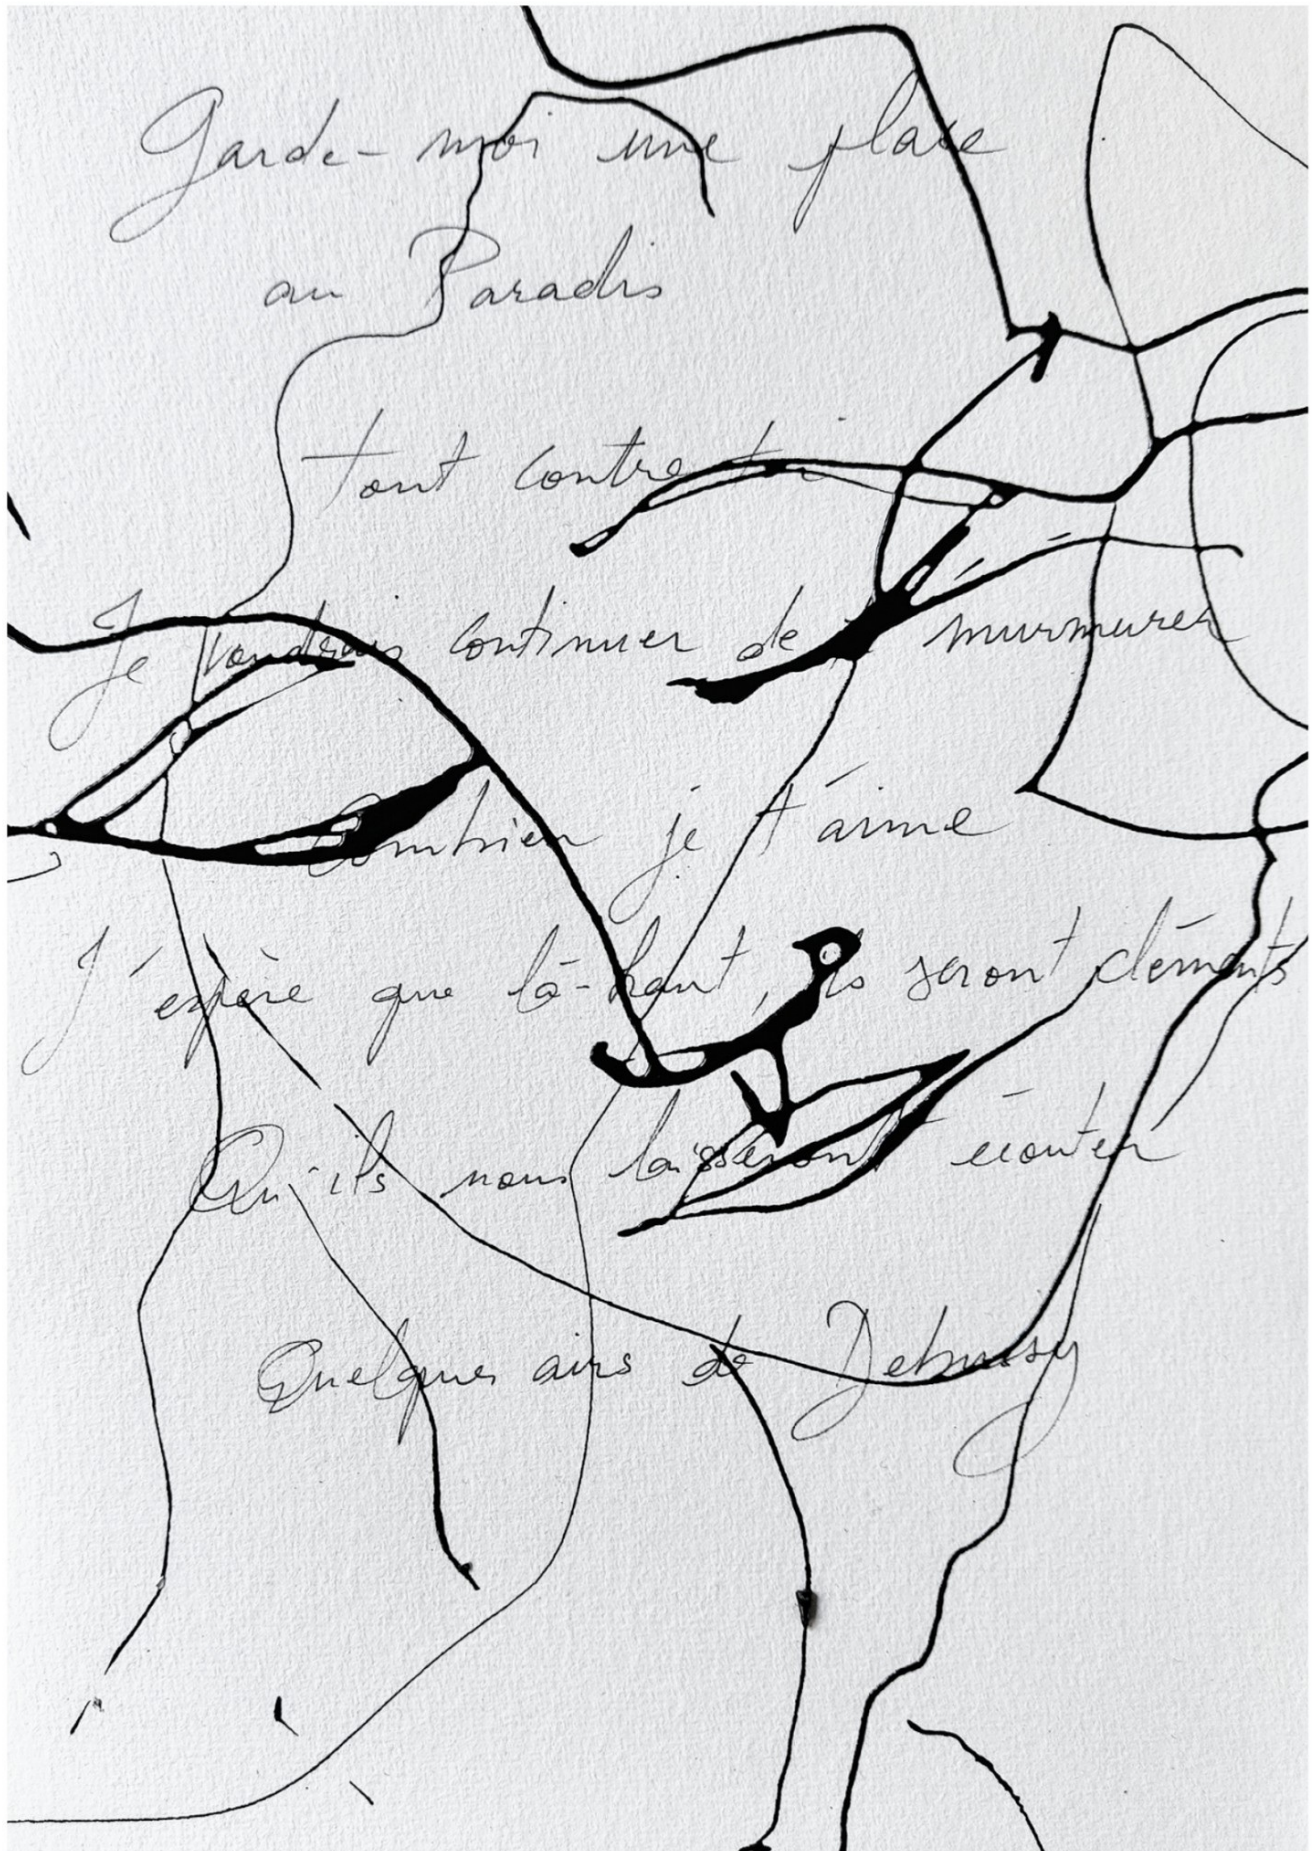 Garde-moi une place
au Paradis
tout contre toi
Je voudrais continuer de murmurer
Combien je t'aime
J'espère que là-haut, ils seront cléments
Qu'ils nous laisseront écouter
Quelques airs de Debussy